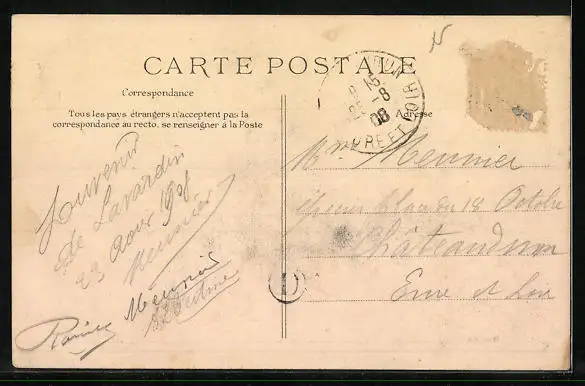 CARTE POSTALE
Correspondance
Tous les pays étrangers n'acceptent pas la
correspondance au recto, se renseigner à la Poste
Adresse
Souvenir
de Lavardin
23 Aout 1908
Meunier
Meunier
Mme Meunier
place du 18 Octobre
Châteaudun
Eure et Loir
15
-8
08